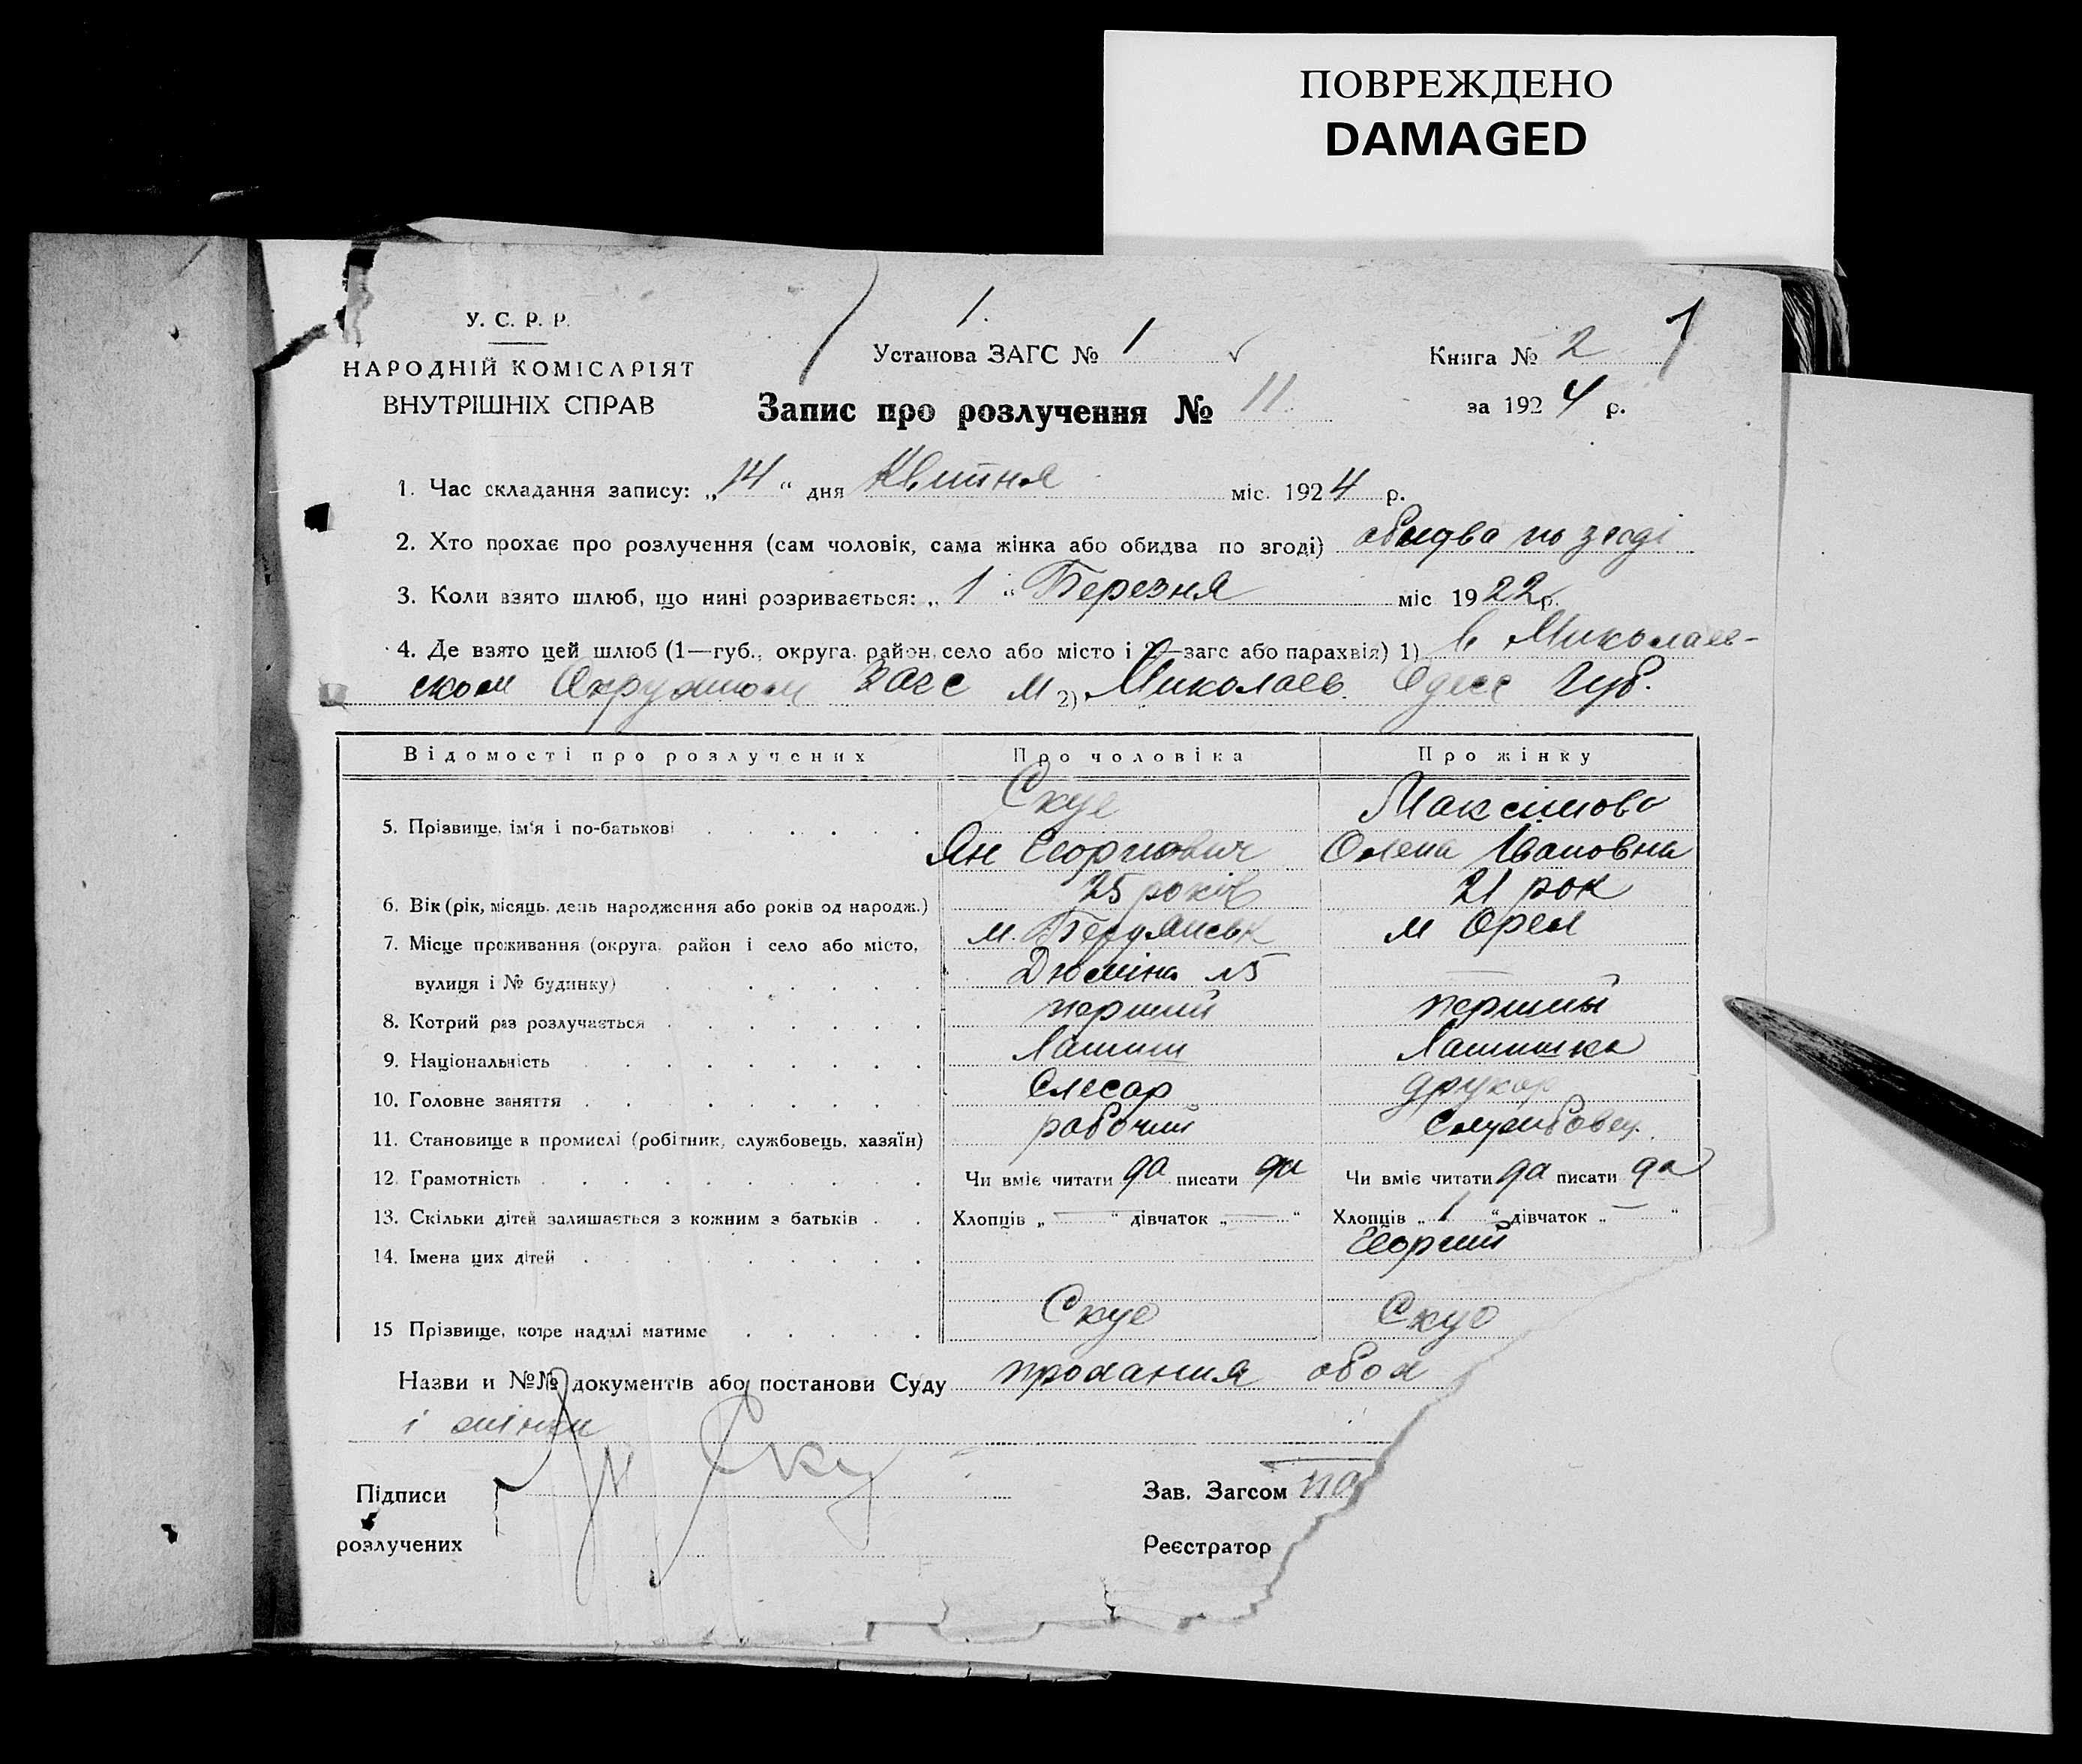 ПОВРЕЖДЕНО
DAMAGED
1.
1
У. С. Р. Р.
НАРОДНІЙ КОМІСАРІЯТ
ВНУТРІШНІХ СПРАВ
Установа ЗАГС № 1
Книга № 2
за 1924 р.
Запис про розлучення № 11
1. Час складання запису: „14“ дня Квітня міс. 1924 р.
2. Хто прохає про розлучення (сам чоловік, сама жінка або обидва по згоді) обидва по згоді
3. Коли взято шлюб, що нині розривається: „1“ Березня міс 1922 р.
4. Де взято цей шлюб (1—губ., округа, район, село або місто і 2—загс або парахвія) 1) в Миколаев-
ском Окружном Загс м 2) Миколаев Одесс Губ.
Відомості про розлучених Про чоловіка Про жінку
Скуе Максимова
5. Прізвище, ім'я і по-батькові
Ян Георгиевич Олена Івановна
6. Вік (рік, місяць, день народження або років од народж.) 25 років 21 рок
7. Місце проживання (округа, район і село або місто, м. Бердянськ м Орел
вулиця і № будинку) Дюміна 15 —
8. Котрий раз розлучається перший першый
9. Національність Латиш Латишка
10. Головне заняття Слесар друкар
11. Становище в промислі (робітник, службовець, хазяїн) рабочий Службовец.
12. Грамотність Чи вміє читати да писати да Чи вміє читати да писати да
13. Скільки дітей залишається з кожним з батьків Хлопців „—“ дівчаток „—“ Хлопців „1“ дівчаток „—“
14. Імена цих дітей Георгий
15 Прізвище, котре надалі матиме Скуе Скуе
Назви и №№ документів або постанови Суду прохання обох
і
Підписи Скуе
розлучених
Зав. Загсом
Реєстратор